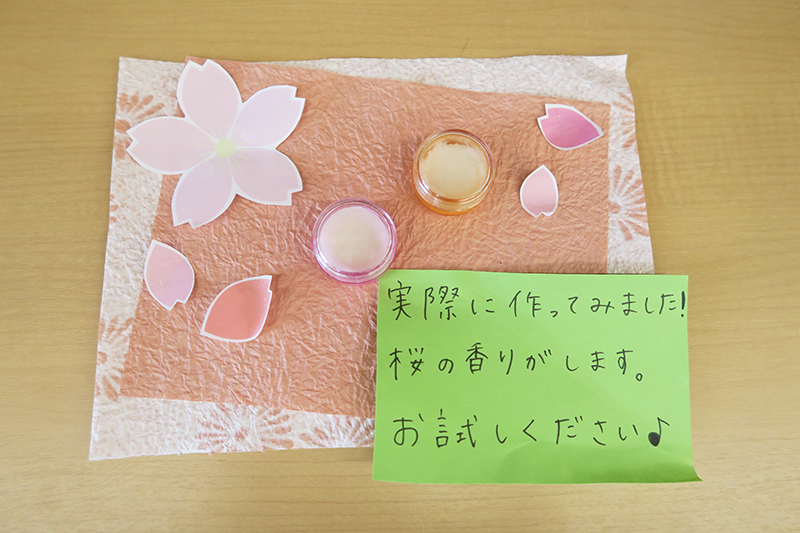 実際に作ってみました!
桜の香りがします。
お試しください♪